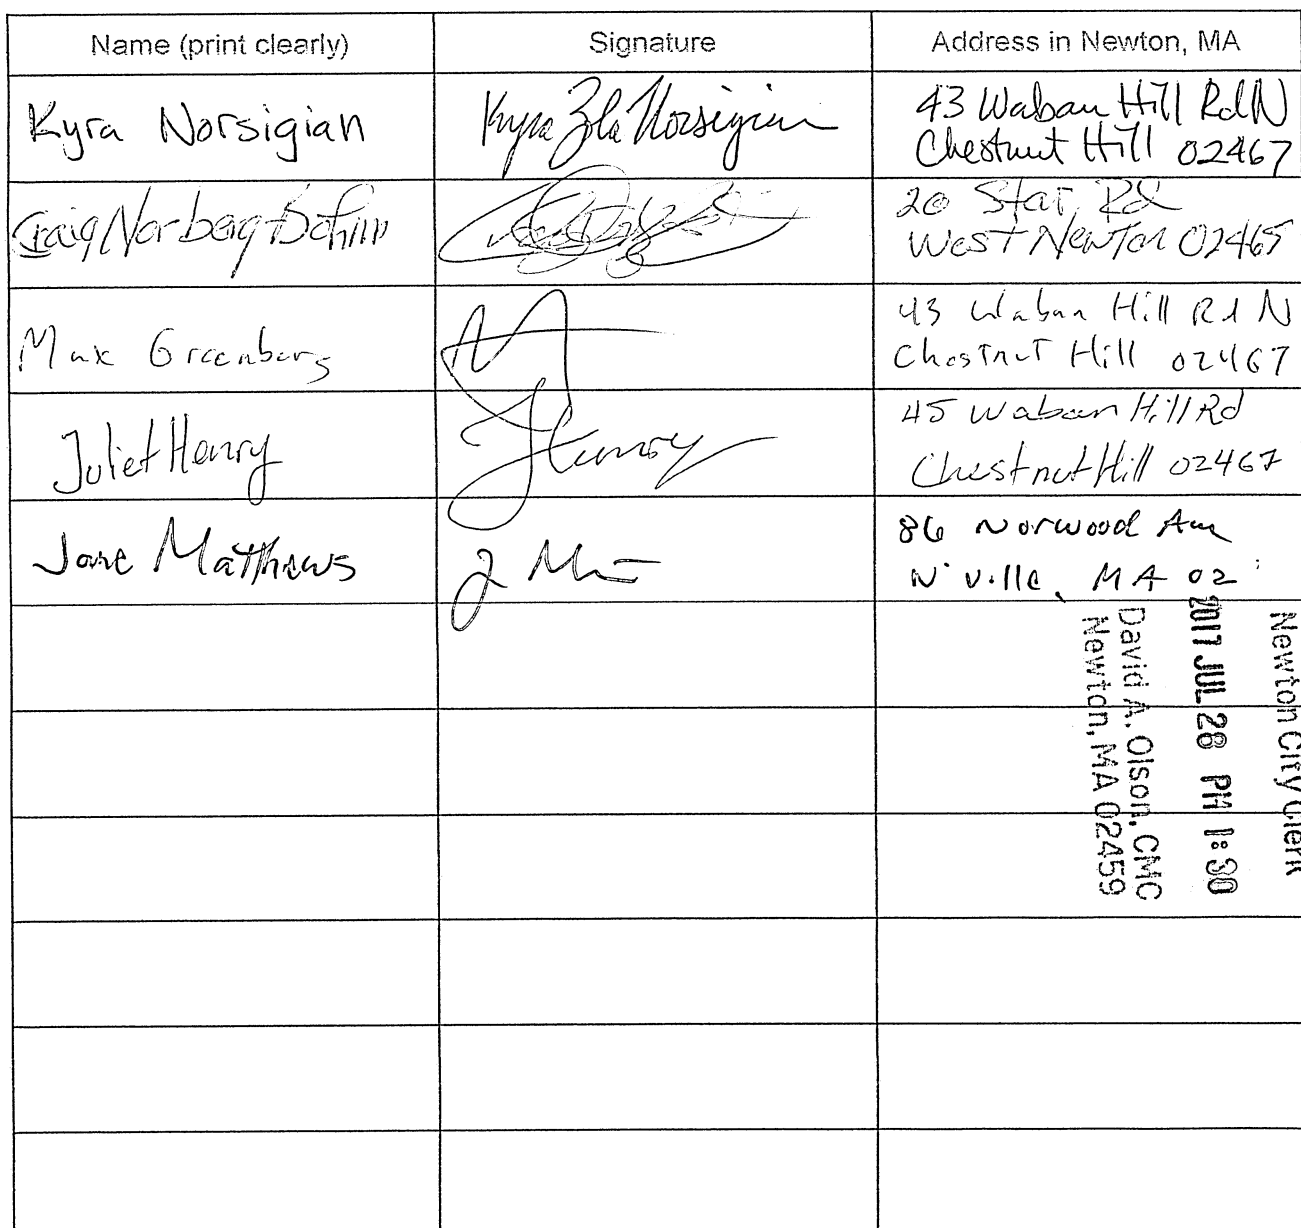 Name (print clearly) Signature Address in Newton, MA
Kyra Norsigian Kyra Zola Norsigian 43 Waban Hill Rd N
Chestnut Hill 02467
Craig Norberg-Bohm 20 Star Rd
West Newton 02465
Max Greenberg 43 Waban Hill Rd N
Chestnut Hill 02467
Juliet Henry J Henry 45 Waban Hill Rd
Chestnut Hill 02467
Jane Matthews J M 86 Norwood Ave
N'ville, MA 02
Newton City Clerk
2017 JUL 28 PM 1:30
David A. Olson, CMC
Newton, MA 02459